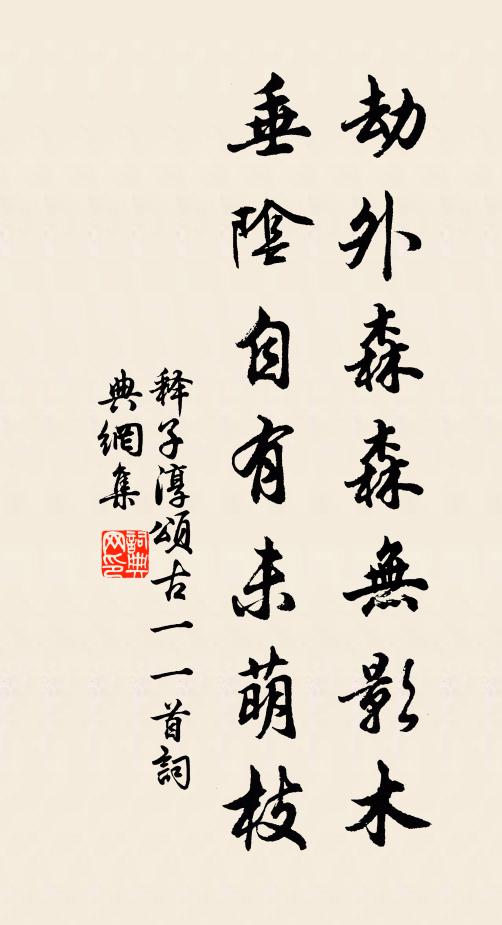 劫外森森無影木
垂陰自有未萌枝
释子淳頌古一一首詞
典網集
詞典
网印